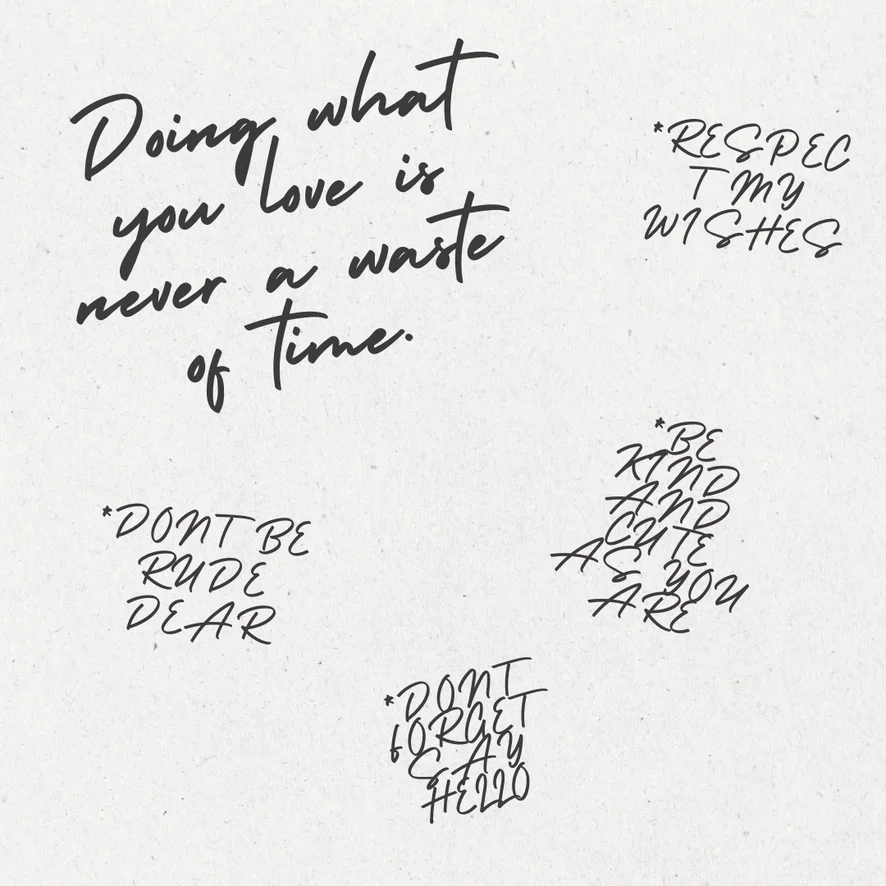 Doing what
you love is
never a waste
of time.
*RESPEC
T MY
WISHES
*BE
KIND
AND
CUTE
AS YOU
ARE
*DONT BE
RUDE
DEAR
*DONT
fORGET
SAY
HELLO